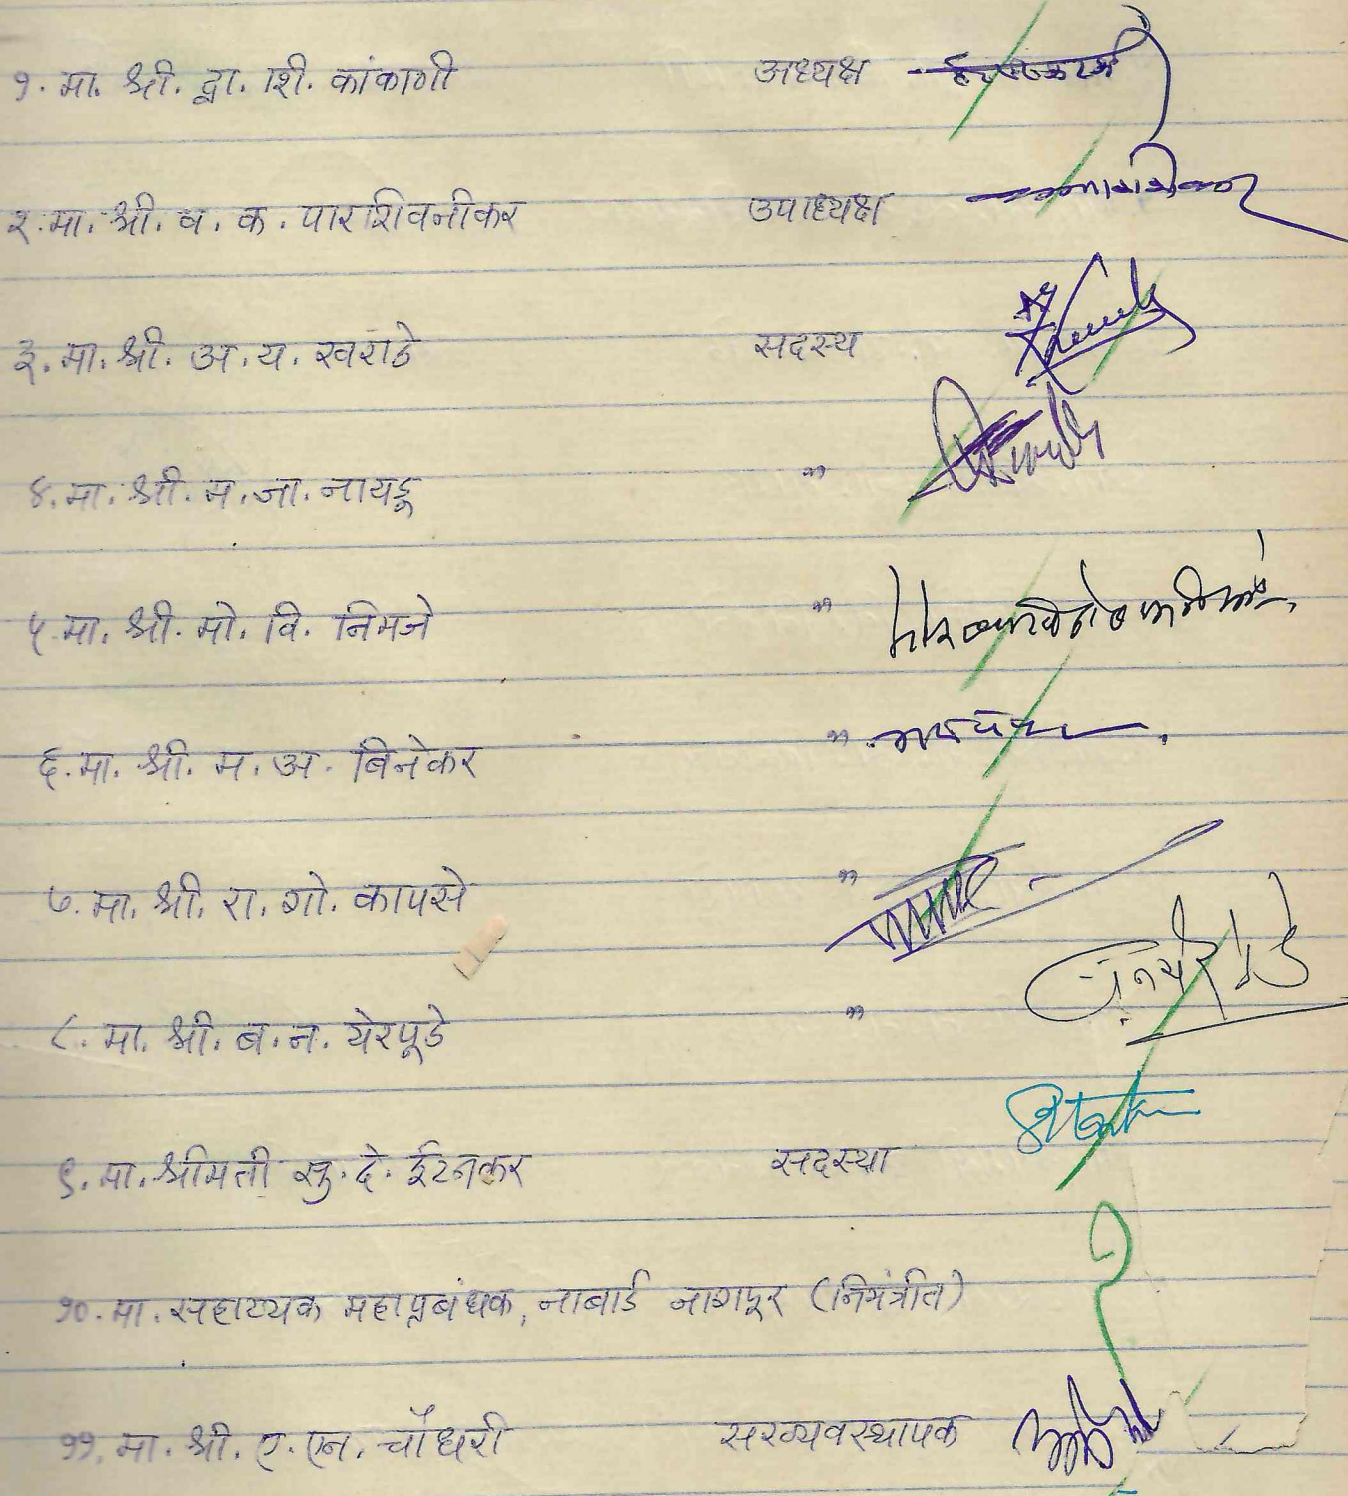 १. मा. श्री. द्वा. शि. कांकाणी अध्यक्ष
२. मा. श्री. व. क. पारशिवनीकर उपाध्यक्ष
३. मा. श्री. अ. य. खराडे सदस्य
४. मा. श्री. म. जा. नायडू "
५. मा. श्री. मो. वि. निमजे "
६. मा. श्री. म. अ. बिनेकर "
७. मा. श्री. रा. गो. कापसे "
८. मा. श्री. ब. न. येरपूडे "
९. मा. श्रीमती सु. दे. ईटनकर सदस्या
१०. मा. सहाय्यक महाप्रबंधक, नाबार्ड नागपूर (निमंत्रीत)
११. मा. श्री. ए. एन. चौधरी सरव्यवस्थापक